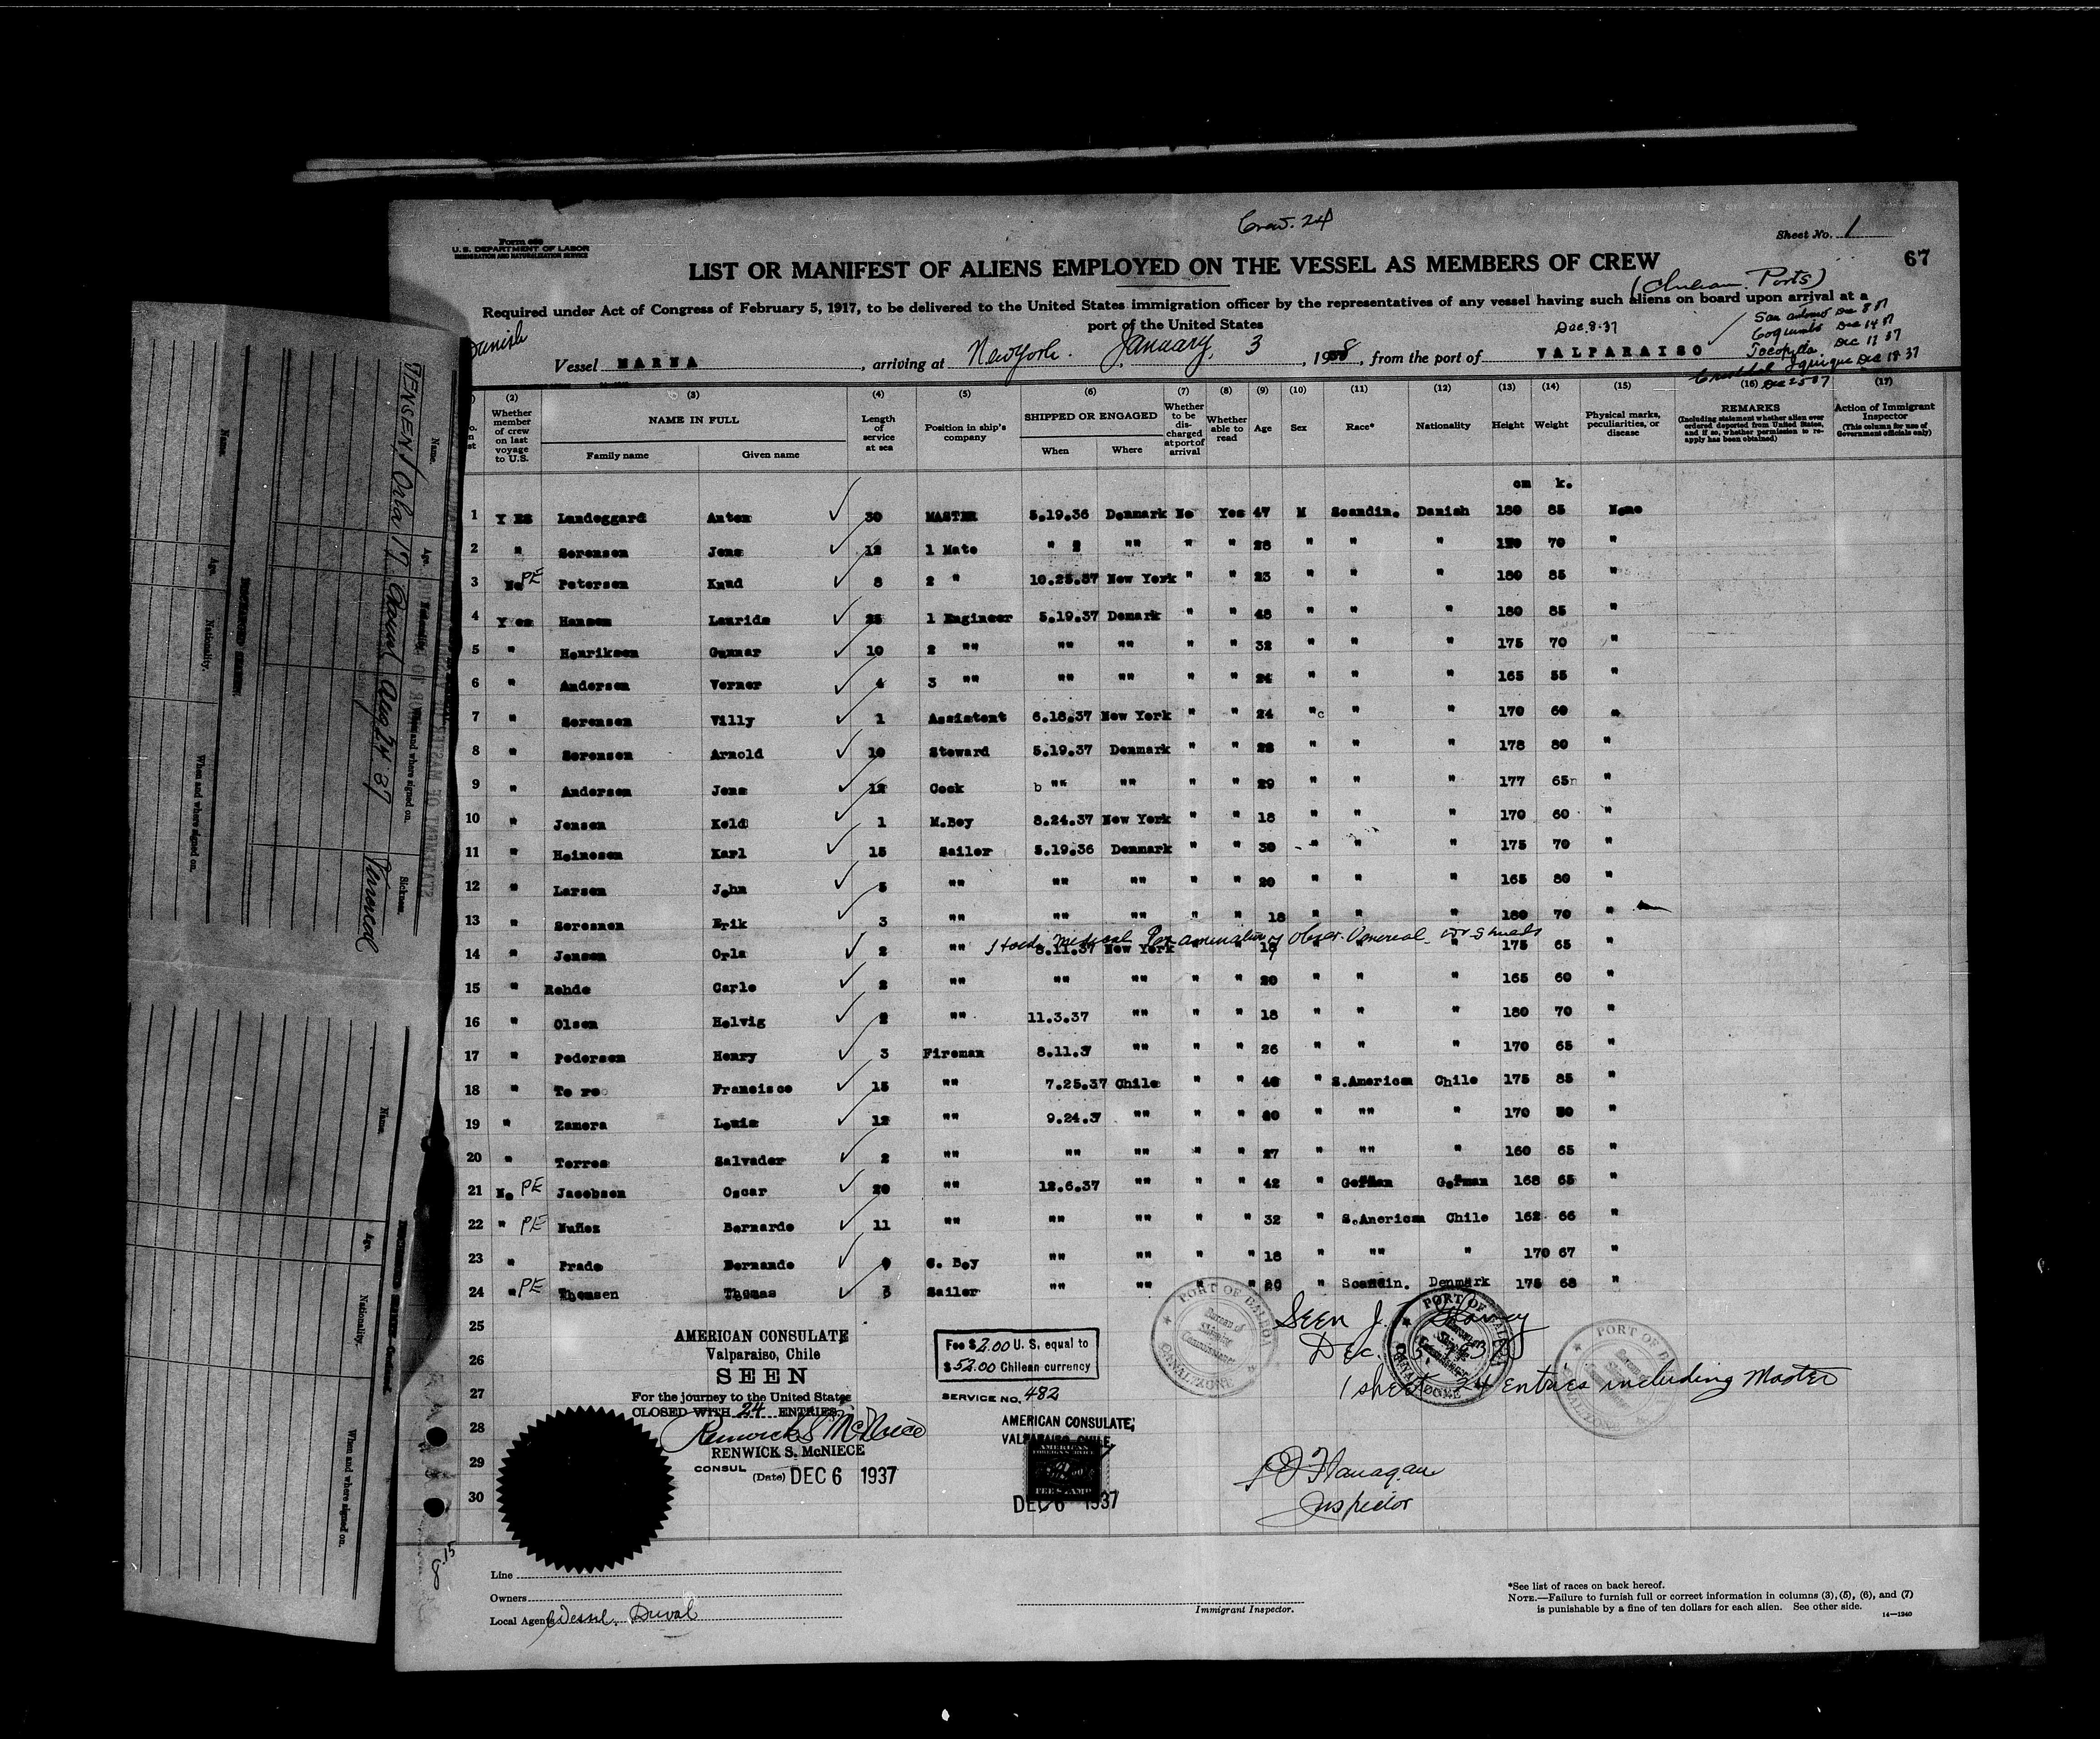 Crew. 24
Form 689
U. S. DEPARTMENT OF LABOR
IMMIGRATION AND NATURALIZATION SERVICE
Sheet No. 1
67
LIST OR MANIFEST OF ALIENS EMPLOYED ON THE VESSEL AS MEMBERS OF CREW
(Chilean Ports)
Required under Act of Congress of February 5, 1917, to be delivered to the United States immigration officer by the representatives of any vessel having such aliens on board upon arrival at a
port of the United States
Danish
Dec. 8-37
San antonio Dec 8 37
Coquimbo Dec 14 37
Tocopilla Dec 17 37
Iquique Dec 18 37
Cristobal Dec 25 37
Vessel MARNA, arriving at New York. January, 3, 1938, from the port of VALPARAISO
(2) (3) (4) (5) (6) (7) (8) (9) (10) (11) (12) (13) (14) (15) (16) (17)
Whether member of crew on last voyage to U.S. NAME IN FULL Family name Given name Length of service at sea Position in ship's company SHIPPED OR ENGAGED When Where Whether to be discharged at port of arrival Whether able to read Age Sex Race* Nationality Height Weight Physical marks, peculiarities, or disease REMARKS (Including statement whether alien ever ordered deported from United States, and if so, whether permission to reapply has been obtained) Action of Immigrant Inspector (This column for use of Government officials only)
cm k.
1 Y ES Landeggard Anton 30 MASTER 5.19.36 Denmark No Yes 47 M Scandin. Danish 180 85 None
2 " Sorensen Jens 12 1 Mate " " "" " " 28 " " " 70 "
3 No PE Petersen Knud 8 2 " 10.25.37 New York " " 23 " " " 180 85 "
4 Y es Hansen Laurids 25 1 Engineer 5.19.37 Demark " " 48 " " " 180 85 "
5 " Henriksen Gunnar 10 2 "" "" "" " " 32 " " " 175 70 "
6 " Andersen Verner 4 3 "" "" "" " " 24 " " " 165 55 "
7 " Sorensen Villy 1 Assistent 6.18.37 New York " " 24 "c " " 170 60 "
8 " Sorensen Arnold 10 Steward 5.19.37 Denmark " " 28 " " " 178 80 "
9 " Andersen Jens 12 Cook b "" "" " " 29 " " " 177 65 "
10 " Jensen Keld 1 M.Boy 8.24.37 New York " " 18 " " " 170 60 "
11 " Heinesen Karl 15 Sailor 5.19.36 Denmark " " 30 " " " 175 70 "
12 " Larsen John 5 "" "" "" " " 20 " " " 165 80 "
13 " Soresnen Erik 3 "" "" "" " " 18 " " " 180 70 "
Held Medical Examination & Obser. Venereal
14 " Jensen Orla 2 "" 8.11.37 New York 19 175 65 "
15 " Rohde Carlo 2 "" "" "" " " 20 " " " 165 60 "
16 " Olsen Helvig 2 "" 11.3.37 "" " " 18 " " " 180 70 "
17 " Pedersen Henry 3 Fireman 8.11.3 "" " " 26 " " " 170 65 "
18 " To ro Francisco 15 "" 7.25.37 Chile " " 40 " S.American Chile 175 85 "
19 " Zamora Louis 12 "" 9.24.3 "" " " 40 " "" " 170 "
20 " Torres Salvador 2 "" "" "" " " 27 " "" " 160 65 "
21 No PE Jacobsen Oscar 20 "" 12.6.37 "" " " 42 " German German 168 65 "
22 " PE Nuñez Bernardo 11 "" "" "" " " 32 " S.American Chile 162 66 "
23 " Prado Bernando C. Boy "" "" " " 18 " "" " 170 67 "
24 " PE Thomsen Thomas 3 Sailor "" "" " " 20 " Scandin. Denmark 175 68 "
25
26
27
28
29
30
AMERICAN CONSULATE
Valparaiso, Chile
SEEN
For the journey to the United States
CLOSED WITH 24 ENTRIES
Renwick S McNiece
RENWICK S. McNIECE
CONSUL (Date) DEC 6 1937
Fee $2.00 U. S. equal to
$52.00 Chilean currency
SERVICE NO. 482
AMERICAN CONSULATE,
VALPARAISO, CHILE
AMERICAN
FOREIGN SERVICE
FEE STAMP
DEC 6 1937
PORT OF BALBOA
Bureau of
Shipping
Commissioner
CANAL ZONE
PORT OF BALBOA
CANAL ZONE
PORT OF
CANAL ZONE
Seen J.
Dec.
1 sheet 24 entries including Master
Flanagan
Inspector
Line
Owners
Local Agents Wessel, Duval
Immigrant Inspector.
*See list of races on back hereof.
NOTE.—Failure to furnish full or correct information in columns (3), (5), (6), and (7)
is punishable by a fine of ten dollars for each alien. See other side.
14—1240
Name. Age. Nationality. When and where signed on. Sickness.
JENSEN, Orla 19 Aug 24 37 Venereal
DISCHARGED SEAMEN
Name. Age. Nationality. When and where signed on.
Name. Age. Nationality. When and where signed on.
8.15